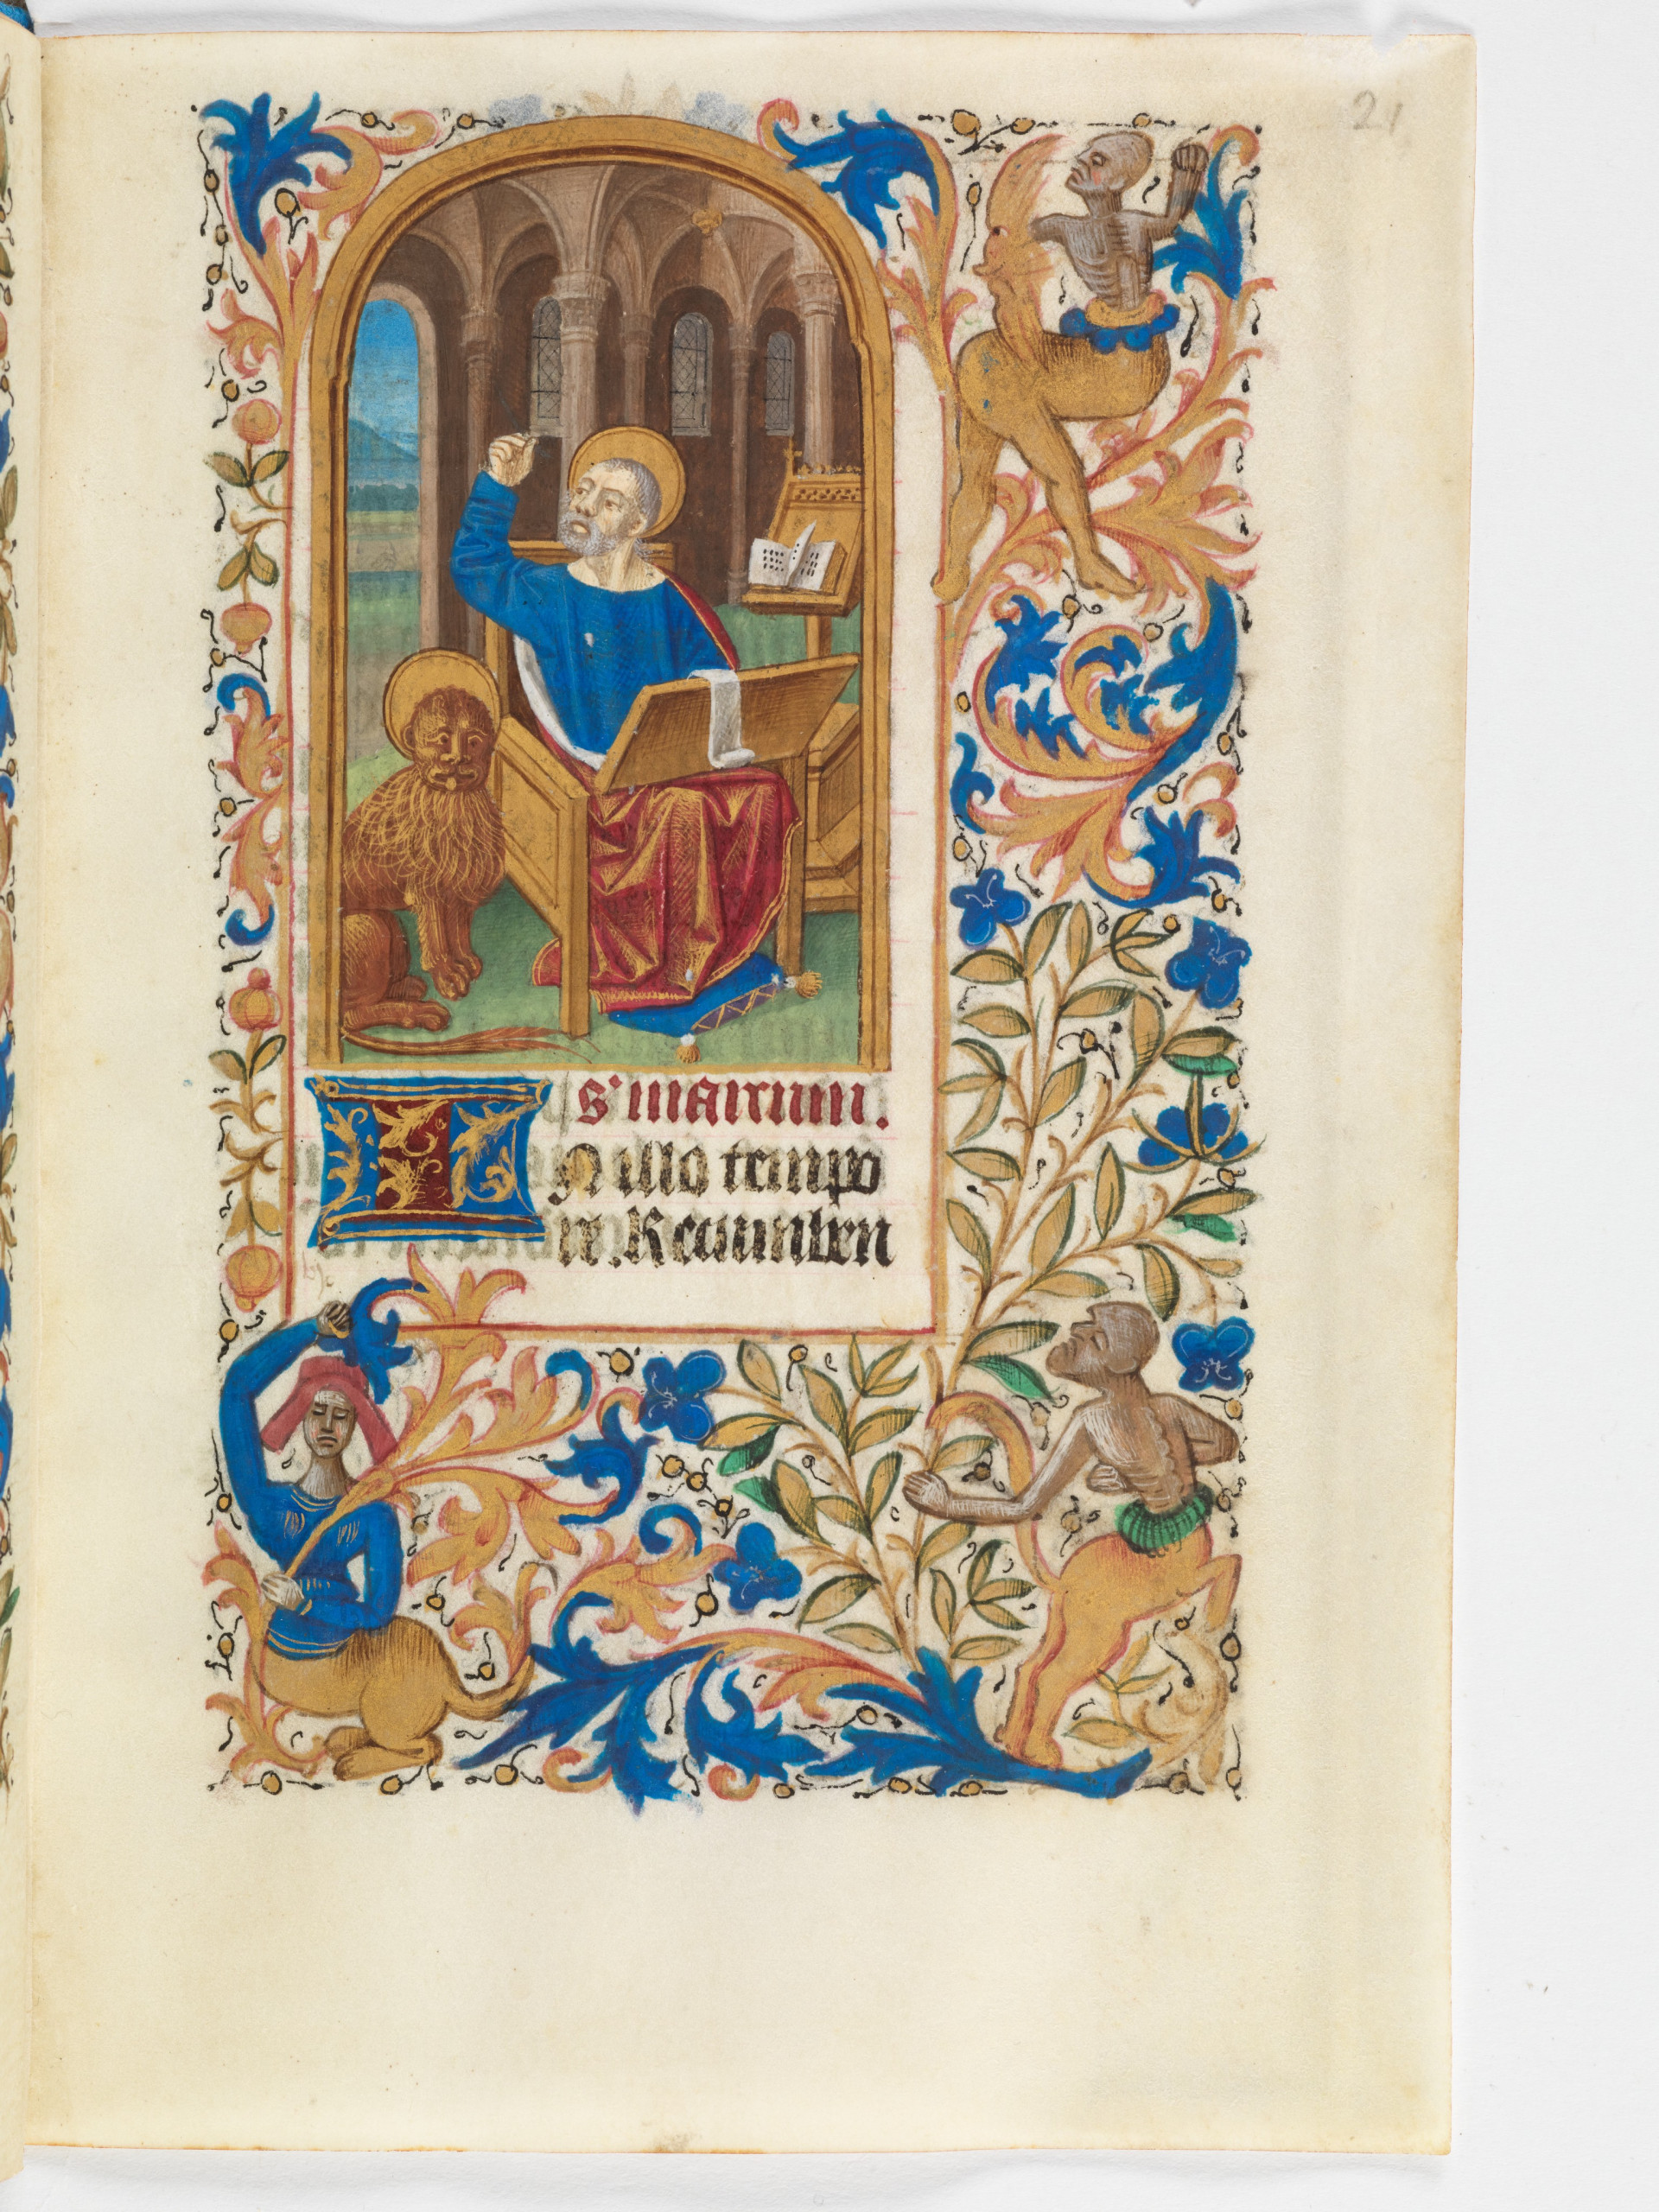 21
S' marcum.
IN illo tempo
re. Recumben